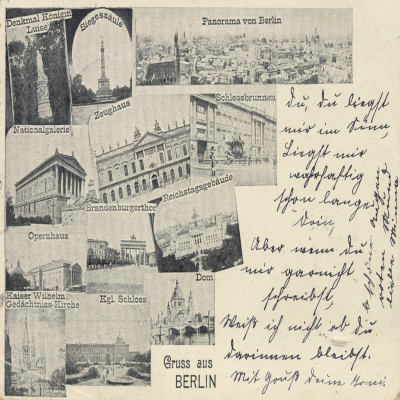 Denkmal Königin
Luise
Siegessäule
Panorama von Berlin
Zeughaus
Schlossbrunnen
Nationalgalerie
Reichstagsgebäude
Brandenburgerthor
Opernhaus
Dom
Kaiser Wilhelm
Gedächtniss-Kirche
Kgl. Schloss
Gruss aus
BERLIN
Du, du liegst
mir im Sinn,
Liegst mir
wahrhaftig
schon lange
drin,
Aber wenn du
mir garnicht
schreibst,
Weiß ich nicht ob du
darinnen bleibst.
Mit Gruß deine